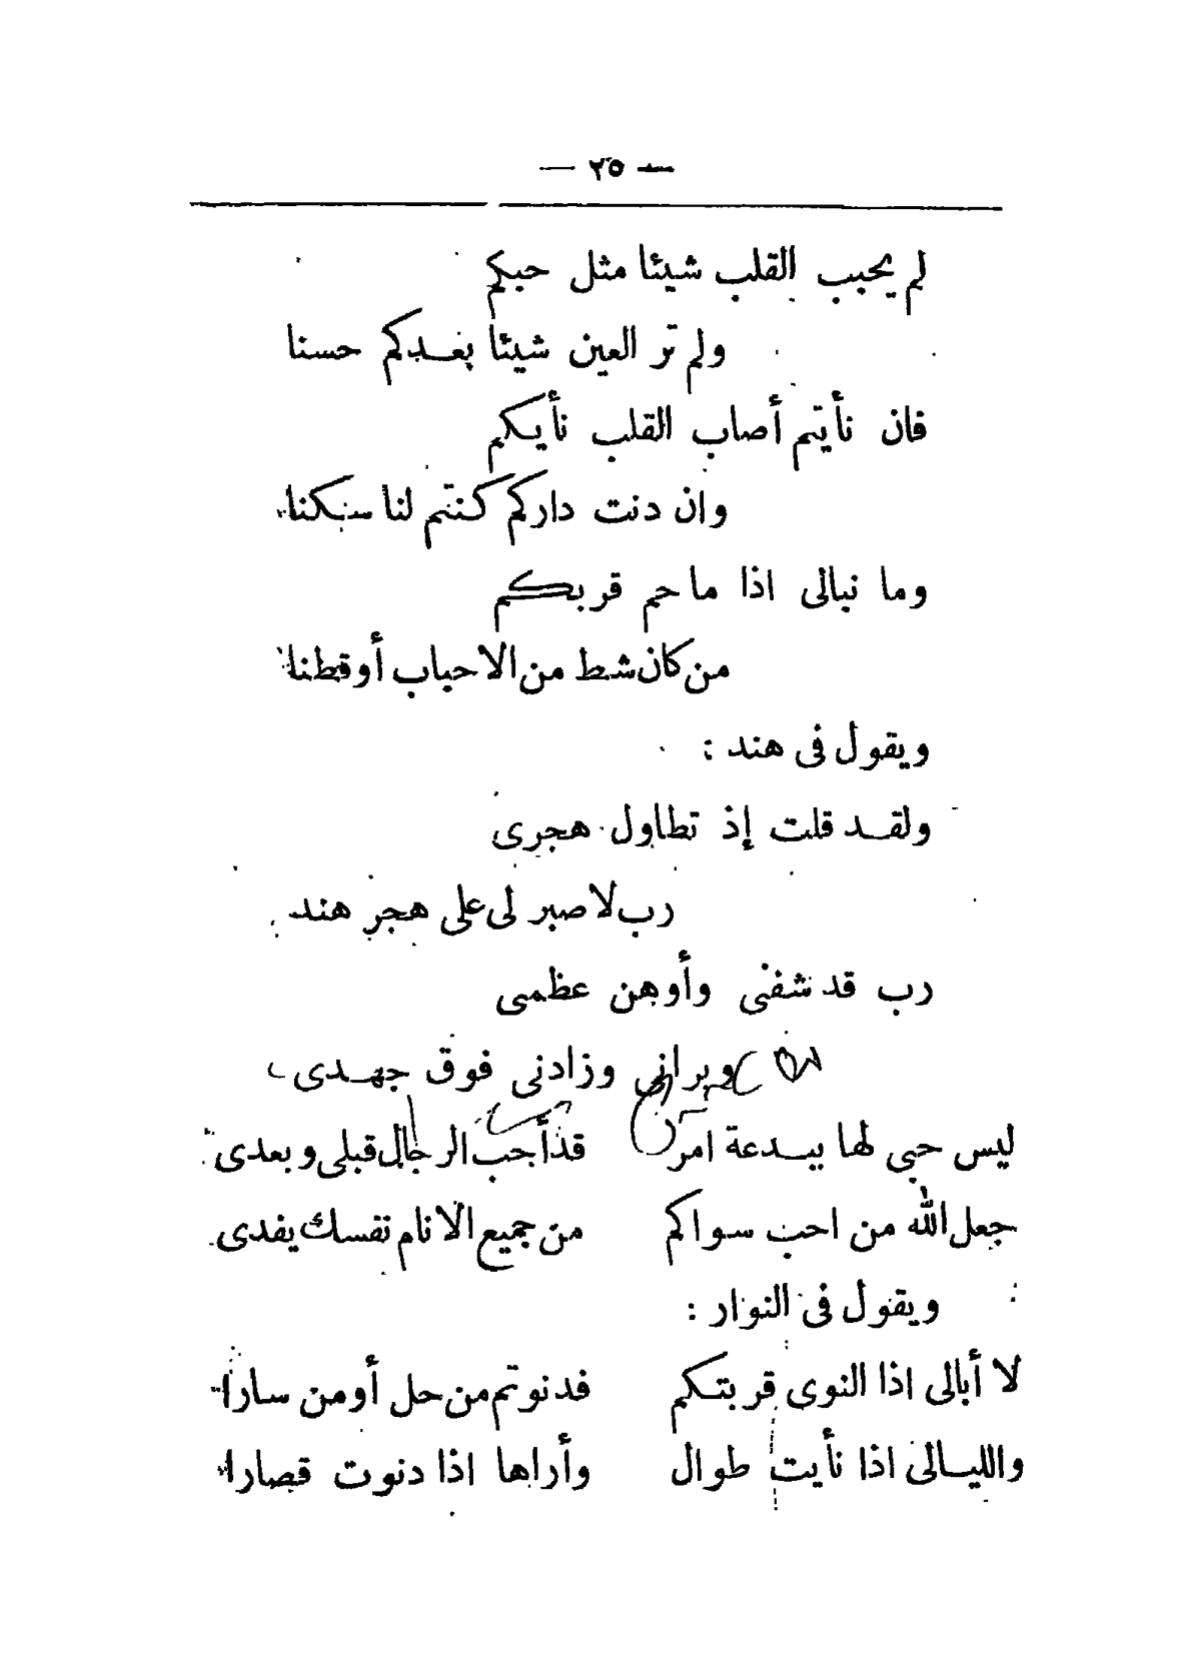 — ٢٥ —
لم يحبب القلب شيئا مثل حبكم
ولم تر العين شيئا بعدكم حسنا
فان نأيتم أصاب القلب نأيكم
وان دنت داركم كنتم لنا سكنا
وما نبالى اذا ما حم قربكم
من كان شط من الاحباب أو قطنا
ويقول فى هند :
ولقد قلت إذ تطاول هجرى
رب لا صبر لى على هجر هند
رب قد شفنى وأوهن عظمى
وبرانى وزادنى فوق جهدى
ليس حبى لها ببدعة امر قد أحب الرجال قبلى وبعدى
جعل الله من احب سواكم من جميع الانام نفسك يفدى
ويقول فى النوار :
لا أبالى اذا النوى قربتكم فدنوتم من حل أو من سارا
والليالى اذا نأيت طوال وأراها اذا دنوت قصارا